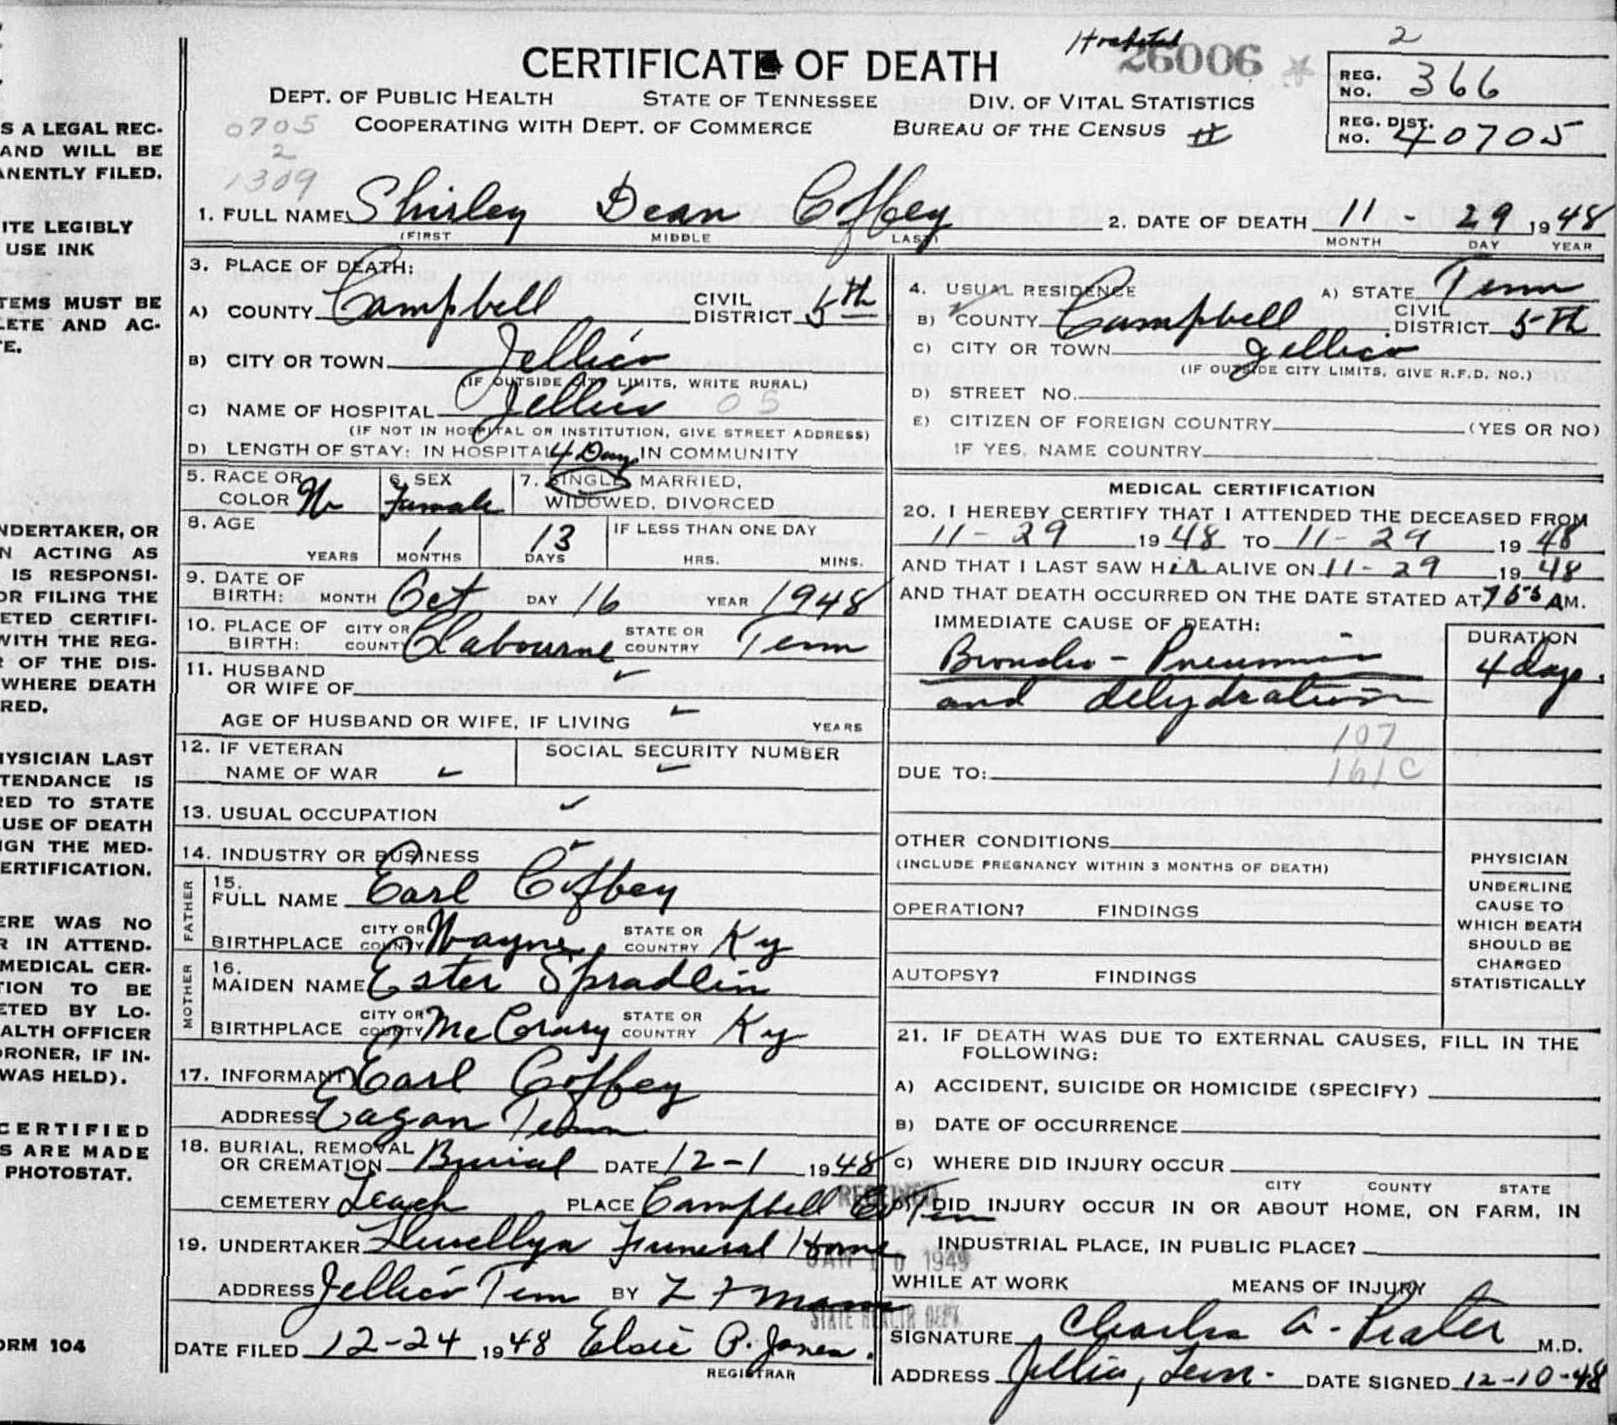 Hospital
26006
2
CERTIFICATE OF DEATH
REG. NO. 366
DEPT. OF PUBLIC HEALTH STATE OF TENNESSEE DIV. OF VITAL STATISTICS
0705
COOPERATING WITH DEPT. OF COMMERCE BUREAU OF THE CENSUS
REG. DIST. NO. 40705
2
1309
1. FULL NAME Shirley Dean Coffey 2. DATE OF DEATH 11 - 29 1948
(FIRST MIDDLE LAST) MONTH DAY YEAR
3. PLACE OF DEATH:
A) COUNTY Campbell CIVIL DISTRICT 5th
B) CITY OR TOWN Jellico
(IF OUTSIDE CITY LIMITS, WRITE RURAL)
C) NAME OF HOSPITAL Jellico 05
(IF NOT IN HOSPITAL OR INSTITUTION, GIVE STREET ADDRESS)
D) LENGTH OF STAY: IN HOSPITAL 4 Days IN COMMUNITY
5. RACE OR COLOR W 6. SEX Female 7. SINGLE, MARRIED,
WIDOWED, DIVORCED
8. AGE 1 13 IF LESS THAN ONE DAY
YEARS MONTHS DAYS HRS. MINS.
9. DATE OF BIRTH: MONTH Oct DAY 16 YEAR 1948
10. PLACE OF BIRTH: CITY OR COUNTY Clabourne STATE OR COUNTRY Tenn
11. HUSBAND
OR WIFE OF
AGE OF HUSBAND OR WIFE, IF LIVING YEARS
12. IF VETERAN SOCIAL SECURITY NUMBER
NAME OF WAR
13. USUAL OCCUPATION
14. INDUSTRY OR BUSINESS
FATHER
15.
FULL NAME Earl Coffey
BIRTHPLACE CITY OR COUNTY Wayne STATE OR COUNTRY Ky
MOTHER
16.
MAIDEN NAME Ester Spradlin
BIRTHPLACE CITY OR COUNTY McCrary STATE OR COUNTRY Ky
17. INFORMANT Earl Coffey
ADDRESS Eagan Tenn
18. BURIAL, REMOVAL
OR CREMATION Burial DATE 12-1 1948
CEMETERY Leach PLACE Campbell Co Tenn
19. UNDERTAKER Llewellyn Funeral Home
ADDRESS Jellico Tenn BY
DATE FILED 12-24 1948 Elsie P. Jones.
REGISTRAR
RECEIVED
JAN 10 1949
STATE HEALTH DEPT.
4. USUAL RESIDENCE A) STATE Tenn
B) COUNTY Campbell CIVIL DISTRICT 5-Th
C) CITY OR TOWN Jellico
(IF OUTSIDE CITY LIMITS, GIVE R.F.D. NO.)
D) STREET NO.
E) CITIZEN OF FOREIGN COUNTRY (YES OR NO)
IF YES, NAME COUNTRY
MEDICAL CERTIFICATION
20. I HEREBY CERTIFY THAT I ATTENDED THE DECEASED FROM
11-29 1948 TO 11-29 1948
AND THAT I LAST SAW Her ALIVE ON 11-29 1948
AND THAT DEATH OCCURRED ON THE DATE STATED AT 7 55 AM.
IMMEDIATE CAUSE OF DEATH: DURATION
Broncho - Pneumonia 4 days.
and dehydration
107
DUE TO: 161C
OTHER CONDITIONS
(INCLUDE PREGNANCY WITHIN 3 MONTHS OF DEATH)
OPERATION? FINDINGS
AUTOPSY? FINDINGS
PHYSICIAN
UNDERLINE
CAUSE TO
WHICH DEATH
SHOULD BE
CHARGED
STATISTICALLY
21. IF DEATH WAS DUE TO EXTERNAL CAUSES, FILL IN THE
FOLLOWING:
A) ACCIDENT, SUICIDE OR HOMICIDE (SPECIFY)
B) DATE OF OCCURRENCE
C) WHERE DID INJURY OCCUR
CITY COUNTY STATE
DID INJURY OCCUR IN OR ABOUT HOME, ON FARM, IN
INDUSTRIAL PLACE, IN PUBLIC PLACE?
WHILE AT WORK MEANS OF INJURY
SIGNATURE Charles A. Prater M.D.
ADDRESS Jellico, Tenn. DATE SIGNED 12-10-48
S A LEGAL REC-
AND WILL BE
ANENTLY FILED.
ITE LEGIBLY
USE INK
TEMS MUST BE
LETE AND AC-
E.
NDERTAKER, OR
N ACTING AS
IS RESPONSI-
OR FILING THE
ETED CERTIFI-
WITH THE REG-
OF THE DIS-
WHERE DEATH
RED.
YSICIAN LAST
TENDANCE IS
RED TO STATE
USE OF DEATH
IGN THE MED-
ERTIFICATION.
ERE WAS NO
R IN ATTEND-
MEDICAL CER-
TION TO BE
ETED BY LO-
ALTH OFFICER
ORONER, IF IN-
WAS HELD).
CERTIFIED
S ARE MADE
PHOTOSTAT.
ORM 104